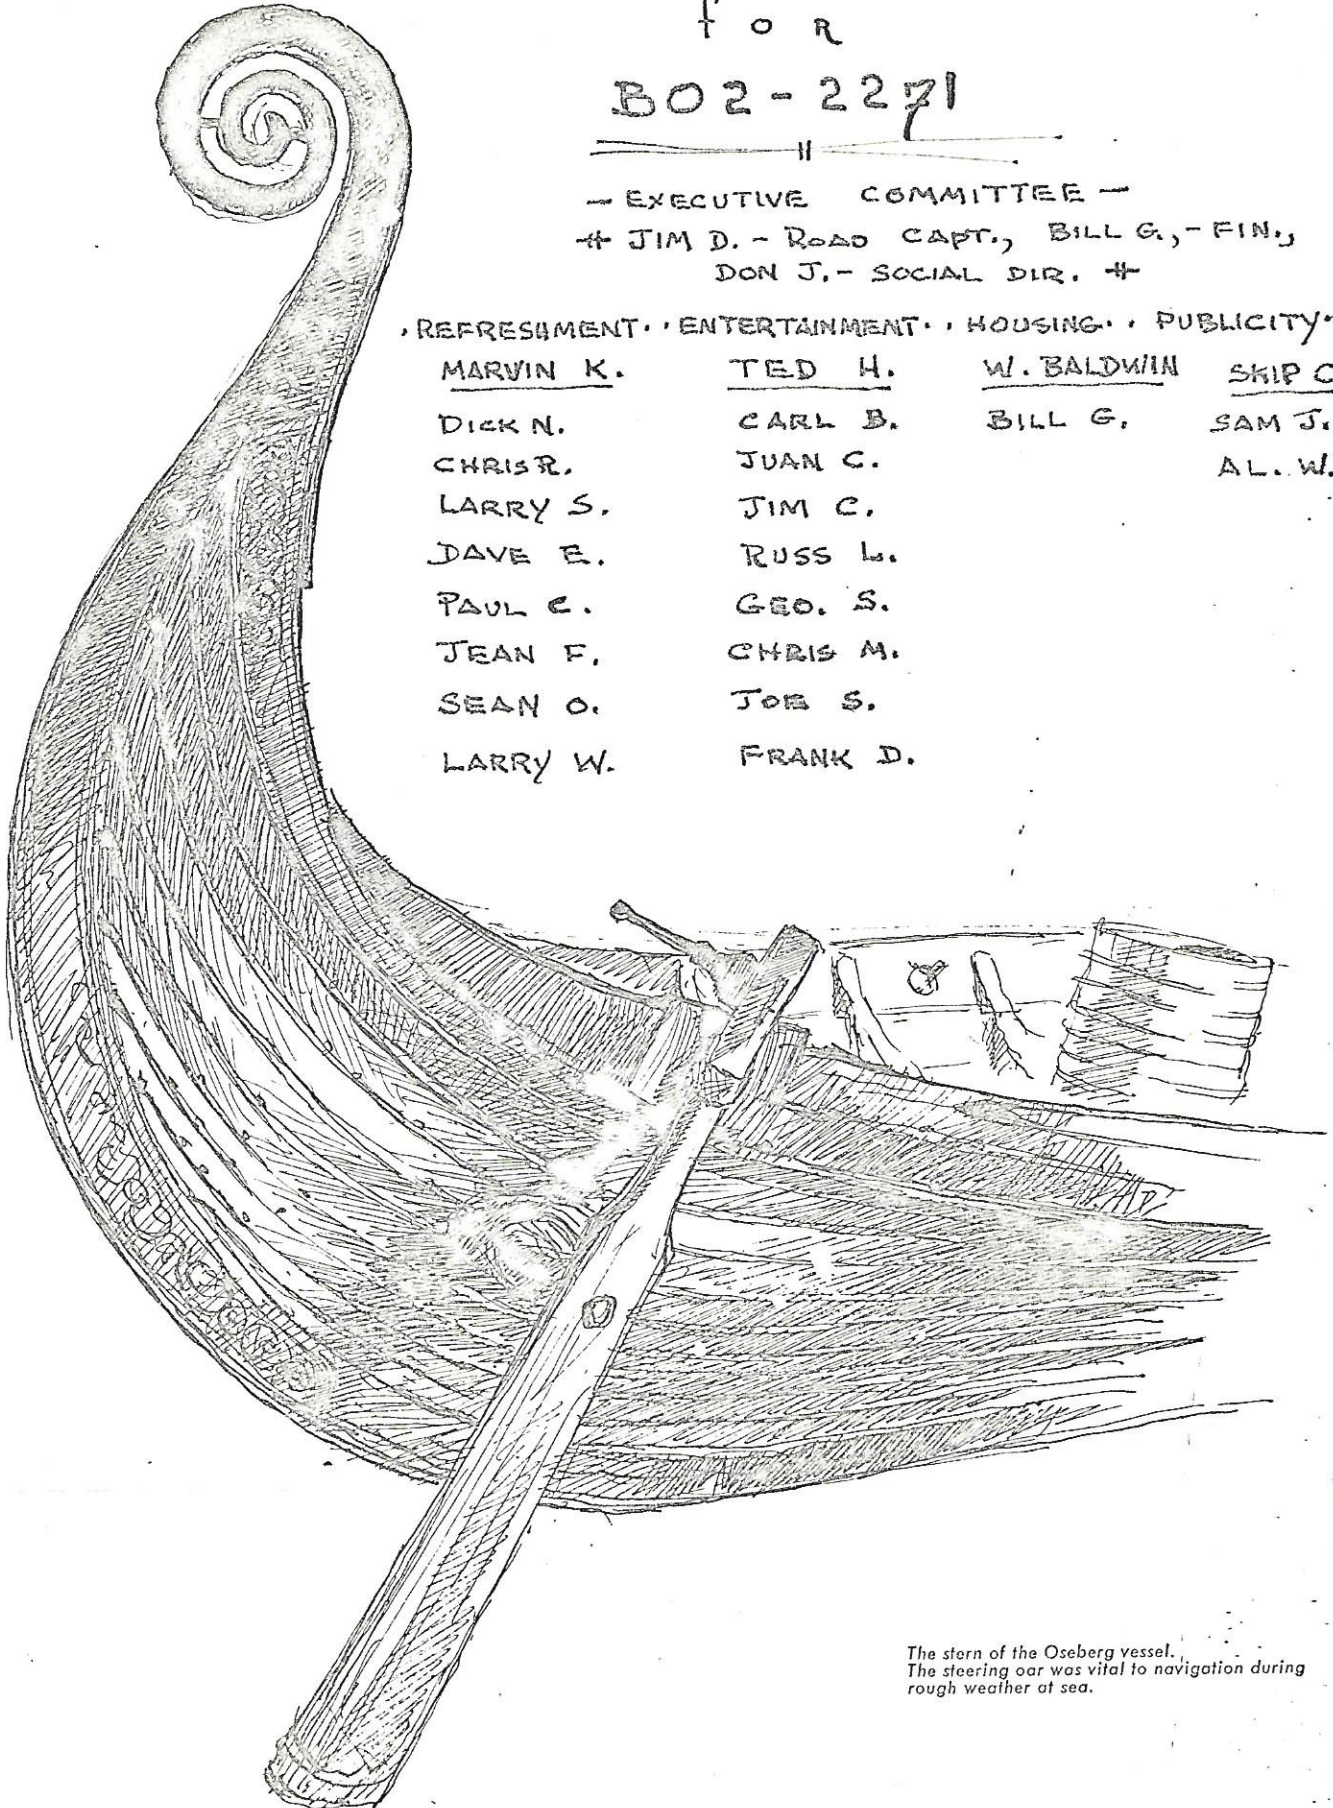 for
BO2-2271
- EXECUTIVE COMMITTEE -
# JIM D. - ROAD CAPT., BILL G., - FIN.,
DON J. - SOCIAL DIR. #
. REFRESHMENT . . ENTERTAINMENT . . HOUSING . . PUBLICITY .
MARVIN K. TED H. W. BALDWIN SKIP C
DICK N. CARL B. BILL G. SAM J.
CHRIS R. JUAN C. AL. W.
LARRY S. JIM C.
DAVE E. RUSS L.
PAUL C. GEO. S.
JEAN F. CHRIS M.
SEAN O. JOE S.
LARRY W. FRANK D.
The stern of the Oseberg vessel.
The steering oar was vital to navigation during
rough weather at sea.